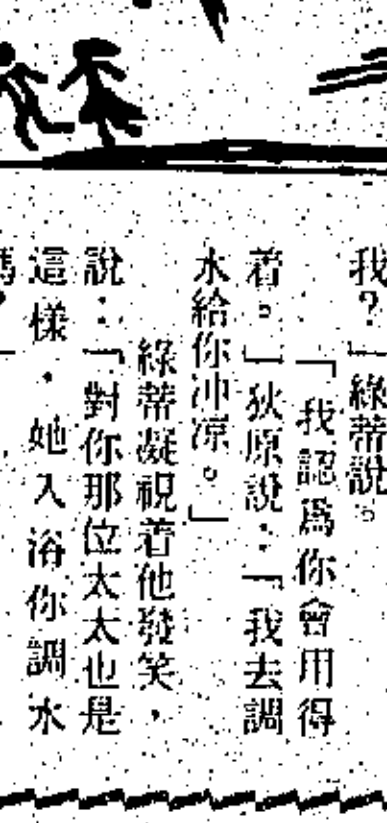 我？」綠蒂說。
「我認爲你會用得
着。」狄原說：「我去調
水給你沖凉。」
綠蒂凝視着他發笑，
說：「對你那位太太也是
這樣，她入浴你調水
嗎？」